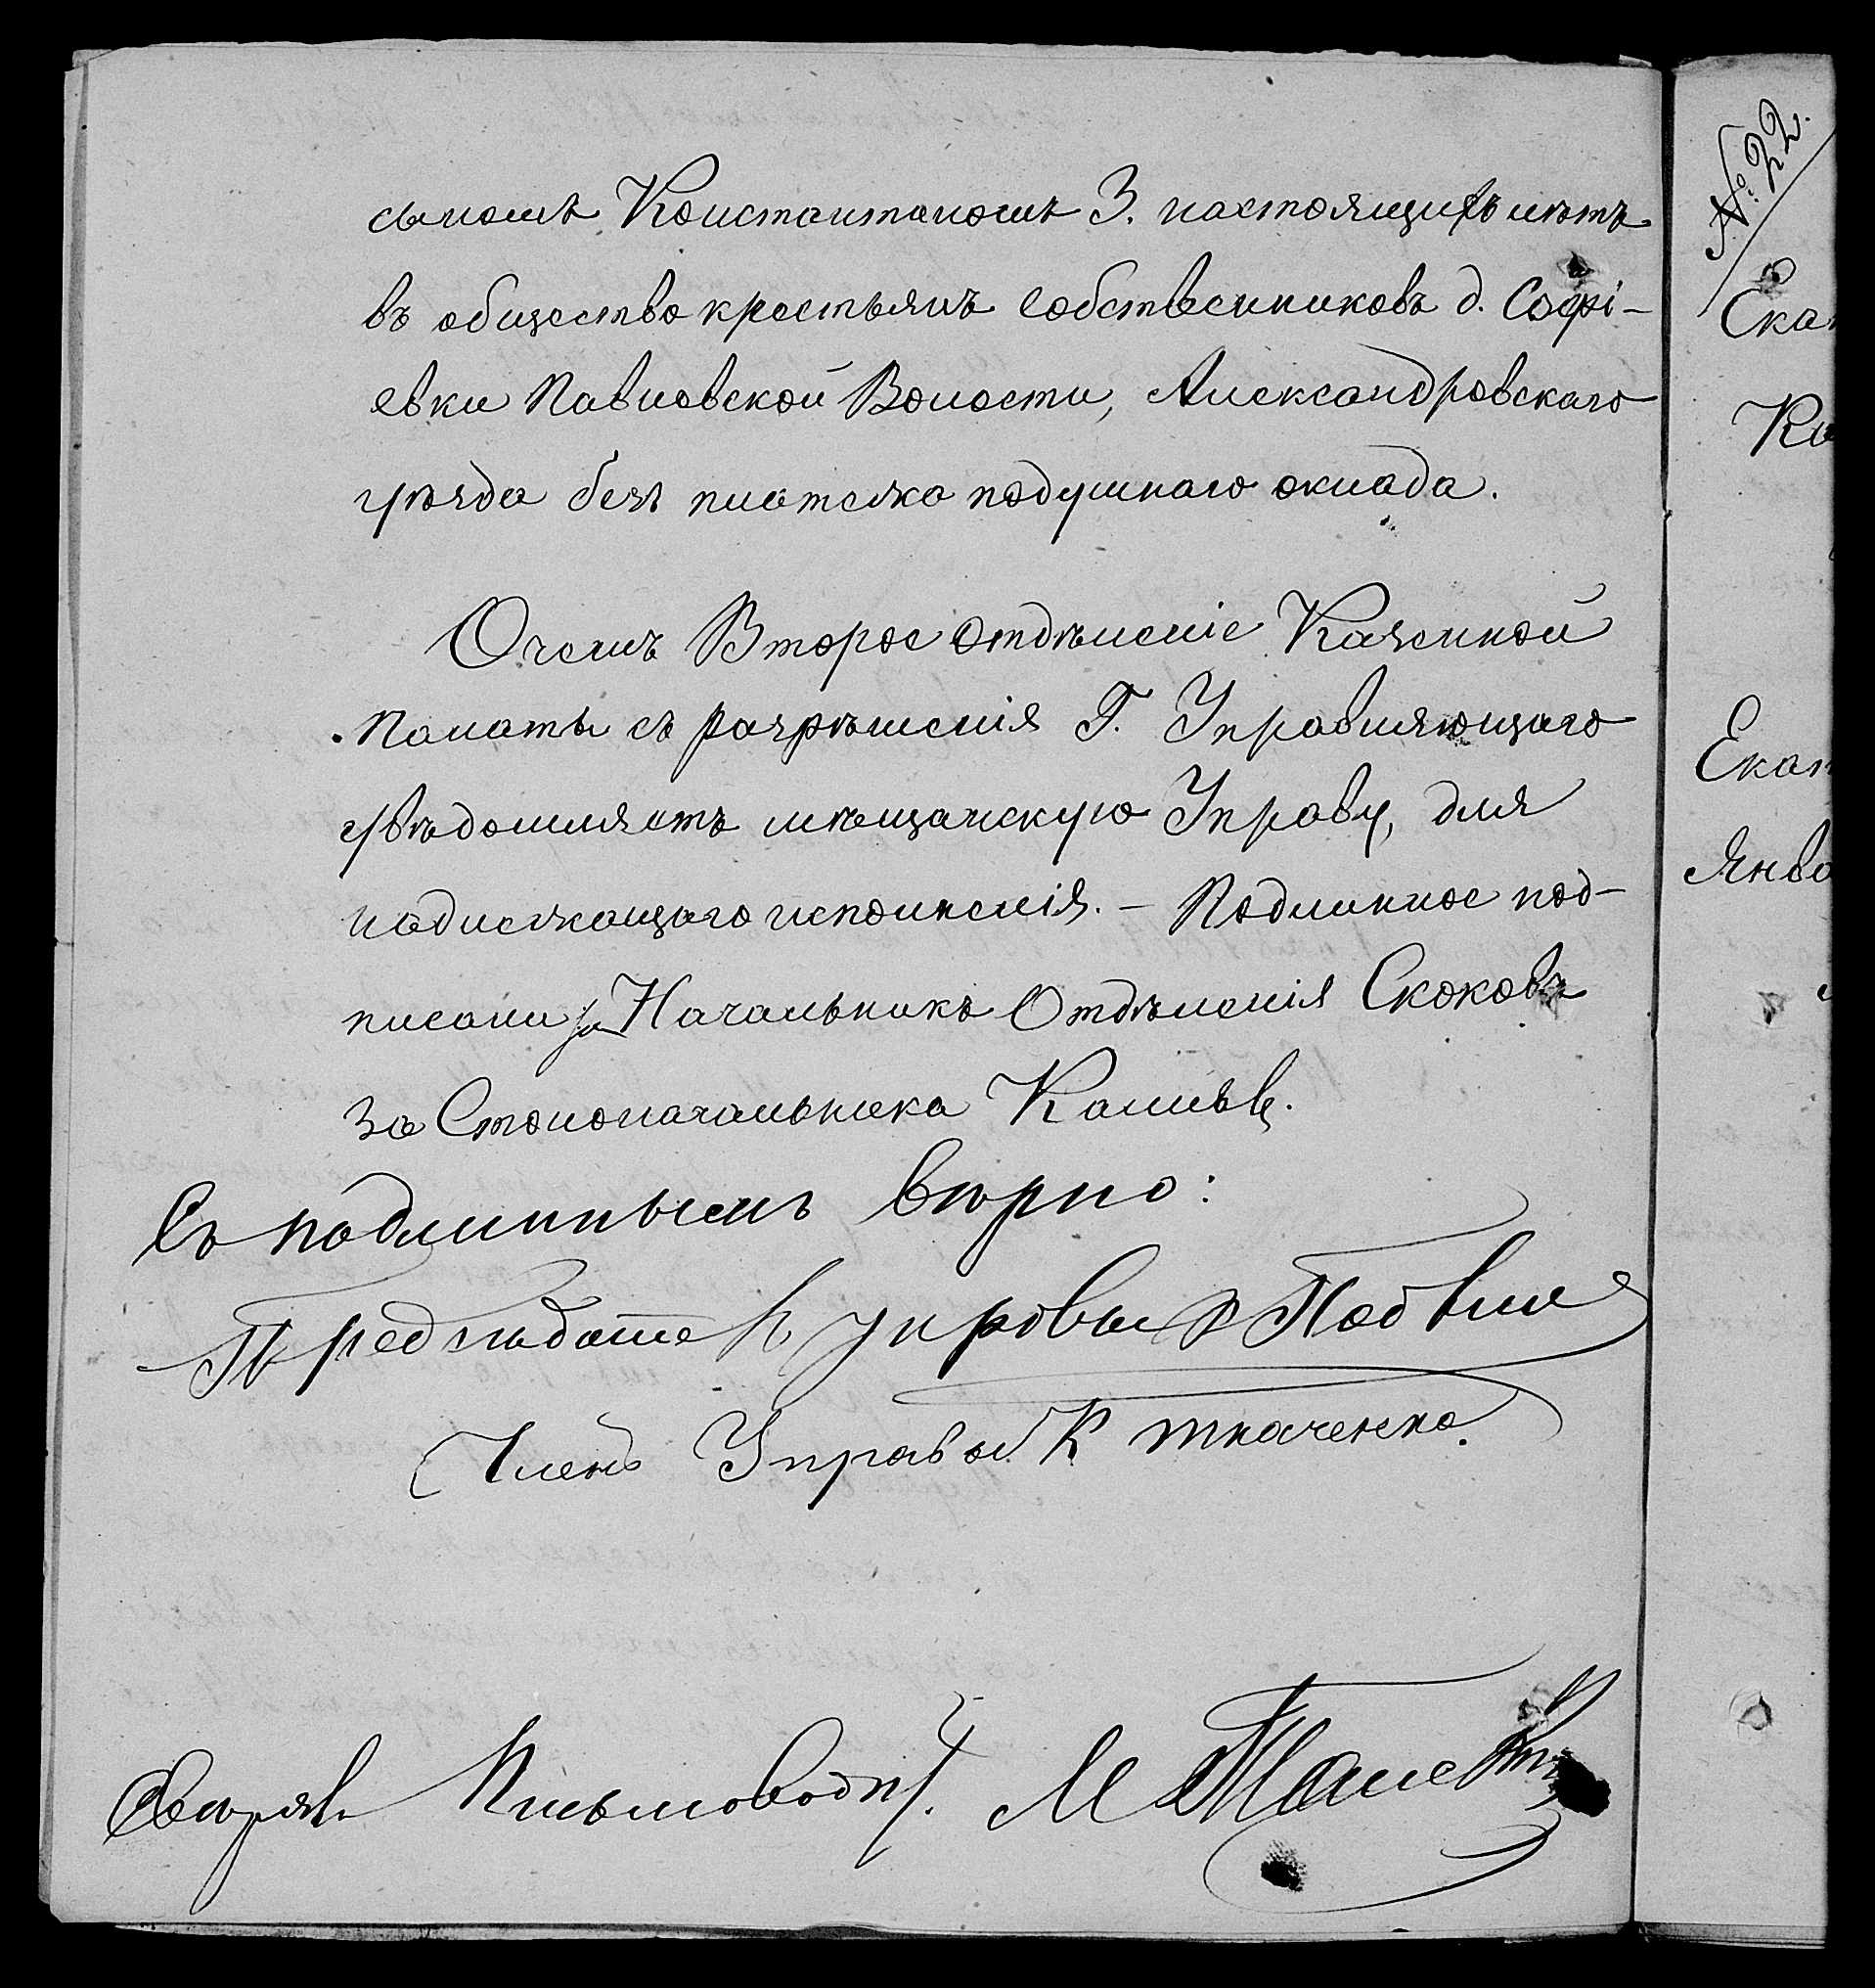 сыномъ Константиномъ 3. настоящихъ лѣтъ
въ общество крестьянъ собственниковъ д. Софі-
евки Павловской Волости, Александровскаго
уѣзда безъ платежа подушнаго оклада.
О чемъ Второе Отдѣленіе Казенной
Палаты съ разрѣшенія Г. Управляющаго
увѣдомляетъ мѣщанскую Управу, для
надлежащаго исполненія. — Подлинное под-
писали за Начальникъ Отдѣленія Скоковъ
за Столоначальника
Съ подлиннымъ вѣрно:
Предсѣдатель управы
Членъ Управы К Ткаченко.
Свѣрялъ Письмовод. М
№ 22.
Екат
Ко
Екат
Янва